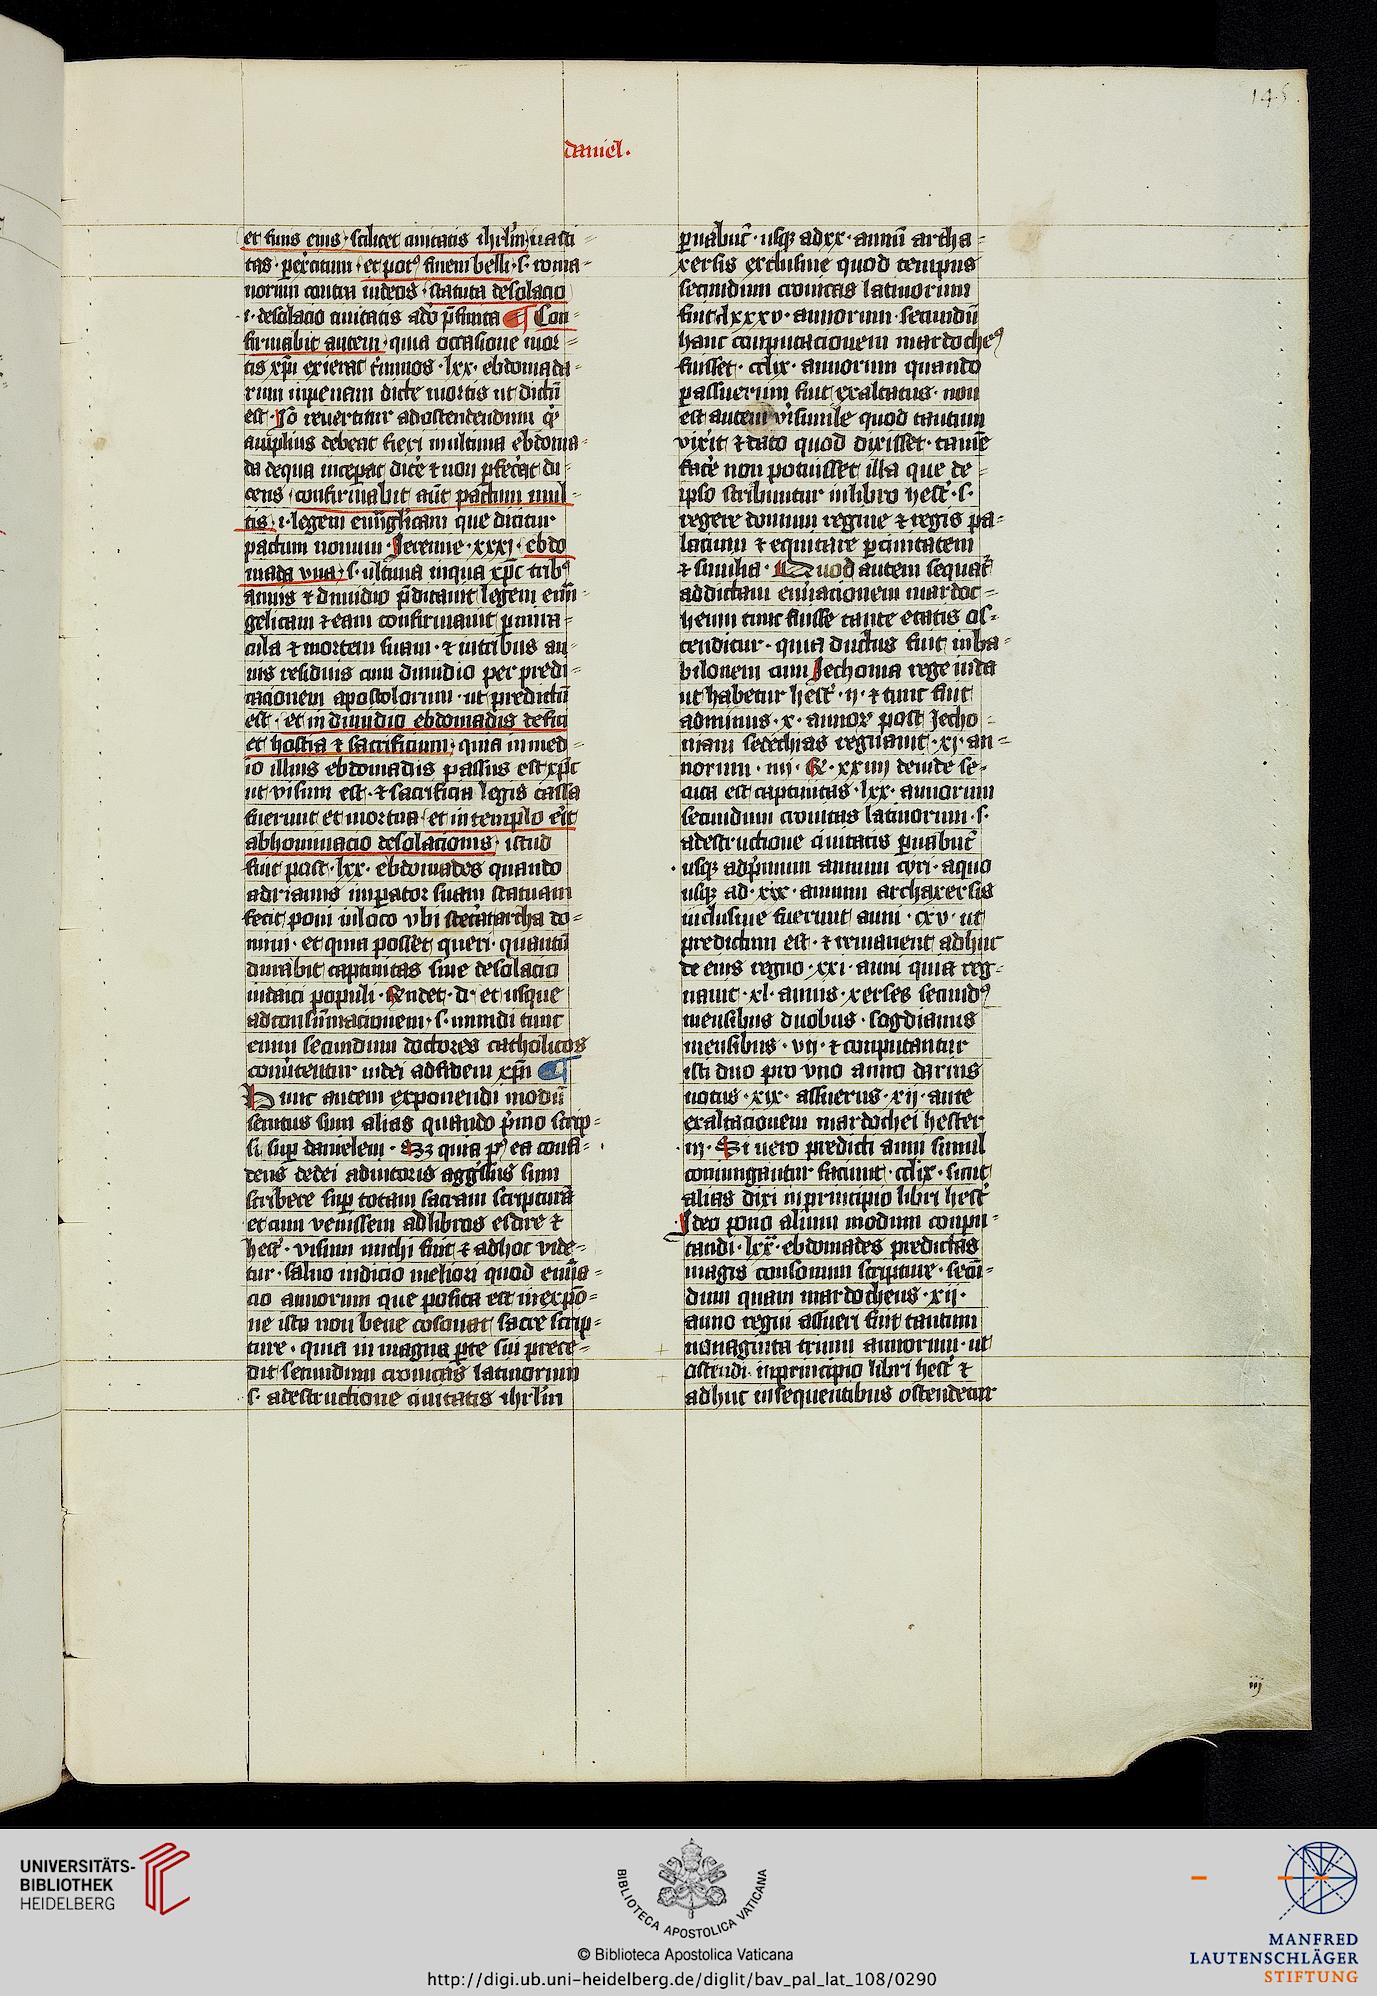 145
daniel.
et finis eius · scilicet ciuitatis ihrlm̄ uasti
tas · per̄citum · et post finem belli · s · roma
norum contra iudeos · statuta desolacio
·i· desolacio ciuitatis a dō p̄finita ¶ Con
firmabit autem · quia occasione mor
tis xp̄i exierat t̄minos · lxx · ebdomada
rum in penam dicte mortis ut dictū
est · Iō reuertitur ad ostendendum qd̄
amplius debeat fieri in ultima ebdoma
da de qua incep̄at dic̄e ⁊ non p̄fec̄at di
cens · confirmabit aūt pactum mul
tis ·i· legem euūglicam que dicitur
pactum nouum · Ieremie · xxxi · ebdo
mada vna · s · ultima in qua xp̄c tribꝰ
annis ⁊ dimidio p̄dicauit legem euū
gelicam ⁊ eam confirmauit p mira
cula ⁊ mortem suam · ⁊ in tribus an
nis residuis cum dimidio per predi
cacionem apostolorum · ut predictū
est · et in dimidio ebdomadis defici
et hostia ⁊ sacrificium · quia in med
io illius ebdomadis passus est xp̄c
ut visum est · ⁊ sacrificia legis cassa
fuerunt et mortua · et in templo er̄it
abhominacio desolacionis · istud
fuit post · lxx · ebdomades quando
adrianus imp̄ator suam statuam
fecit poni in loco vbi stet̄at archa do
mini · et quia posset queri · quantū
durabit captiuitas siue desolacio
iudaici populi · Rn̄det · d· et usque
ad consūmacionem · s · mundi tunc
enim secundum doctores catholicos
conūtentur iudei ad fidem xp̄i ¶
Hunc autem exponendi modū
secutus sum alias quando p̄mo scrip
si sup danielem · Sꝫ quia pꝰ ea confi
dens de dei adiutorio aggressus sum
scribere sup totam sacram scripturā
et cum venissem ad libros esdre ⁊
hest̄ · visum michi fuit ⁊ adhoc vide
tur · saluo iudicio meliori quod enūa
cio annorum que posita est in expō
ne ista non bene cōsonat sacre scrip
ture · quia in magna p̄te sui proce
dit secundum cronicas latinorum
s · a destructione ciuitatis ihrlm̄
p̄nabuc̄ · usqꝫ ad xx · annū artha
xersis exclusiue quod tempus
secundum cronicas latinorum
fuit clxxxv · annorum · secundū
hanc computacionem mardocheꝰ
fuisset · cclix · annorum quando
p assuerum fuit exaltatus · non
est autem v̄isimile quod tantum
vixit ⁊ dato quod dixisset · tamē
fac̄e non potuisset illa que de
ipso scribuntur in libro hest̄ · s ·
regere domum regine ⁊ regis pa
latium ⁊ equitare p ciuitatem
⁊ similia · Quod autem sequat̄
ad dictam enūacionem mardoc
heum tunc fuisse tante etatis os
tenditur · quia ductus fuit in ba
bilonem cum Iechonia rege iuda
ut habetur hest̄ · ii · ⁊ tunc fuit
ad minus · x · annoꝝ post Iecho
niam sedechias regnauit · xi · an
norum · iiij · Rꝫ · xxiiij deinde se
cuta est captiuitas · lxx · annorum
secundum cronicas latinorum · s ·
a destructione ciuitatis p̄nabuc̄
usqꝫ ad p̄mum annum cyri · a quo
usqꝫ ad · xix · annum archaxersis
inclusiue fuerunt anni · cxv · ut
predictum est · ⁊ remanent adhuc
de eius regno · xxi · anni quia reg
nauit · xl · annis · xerses secundꝰ
mensibus duobus · sogdianus
mensibus · vij · ⁊ computantur
isti duo pro vno anno darius
notus · xix · assuerus · xij · ante
exaltacionem mardochei hester
iij · Si uero predicti anni simul
coniungantur faciunt · cclix · sicut
alias dixi in principio libri hest̄
Ideo pono alium modum compu
tandi · lxx · ebdomades predictas
magis consonum scripture · secū
dum quam mardocheus · xij ·
anno regni assueri fuit tantum
nonaginta trium annorum · ut
ostendi in principio libri hest̄ ⁊
adhuc in sequentibus ostendetur
iij
UNIVERSITÄTS-
BIBLIOTHEK
HEIDELBERG
BIBLIOTECA APOSTOLICA VATICANA
© Biblioteca Apostolica Vaticana
http://digi.ub.uni-heidelberg.de/diglit/bav_pal_lat_108/0290
MANFRED
LAUTENSCHLÄGER
STIFTUNG